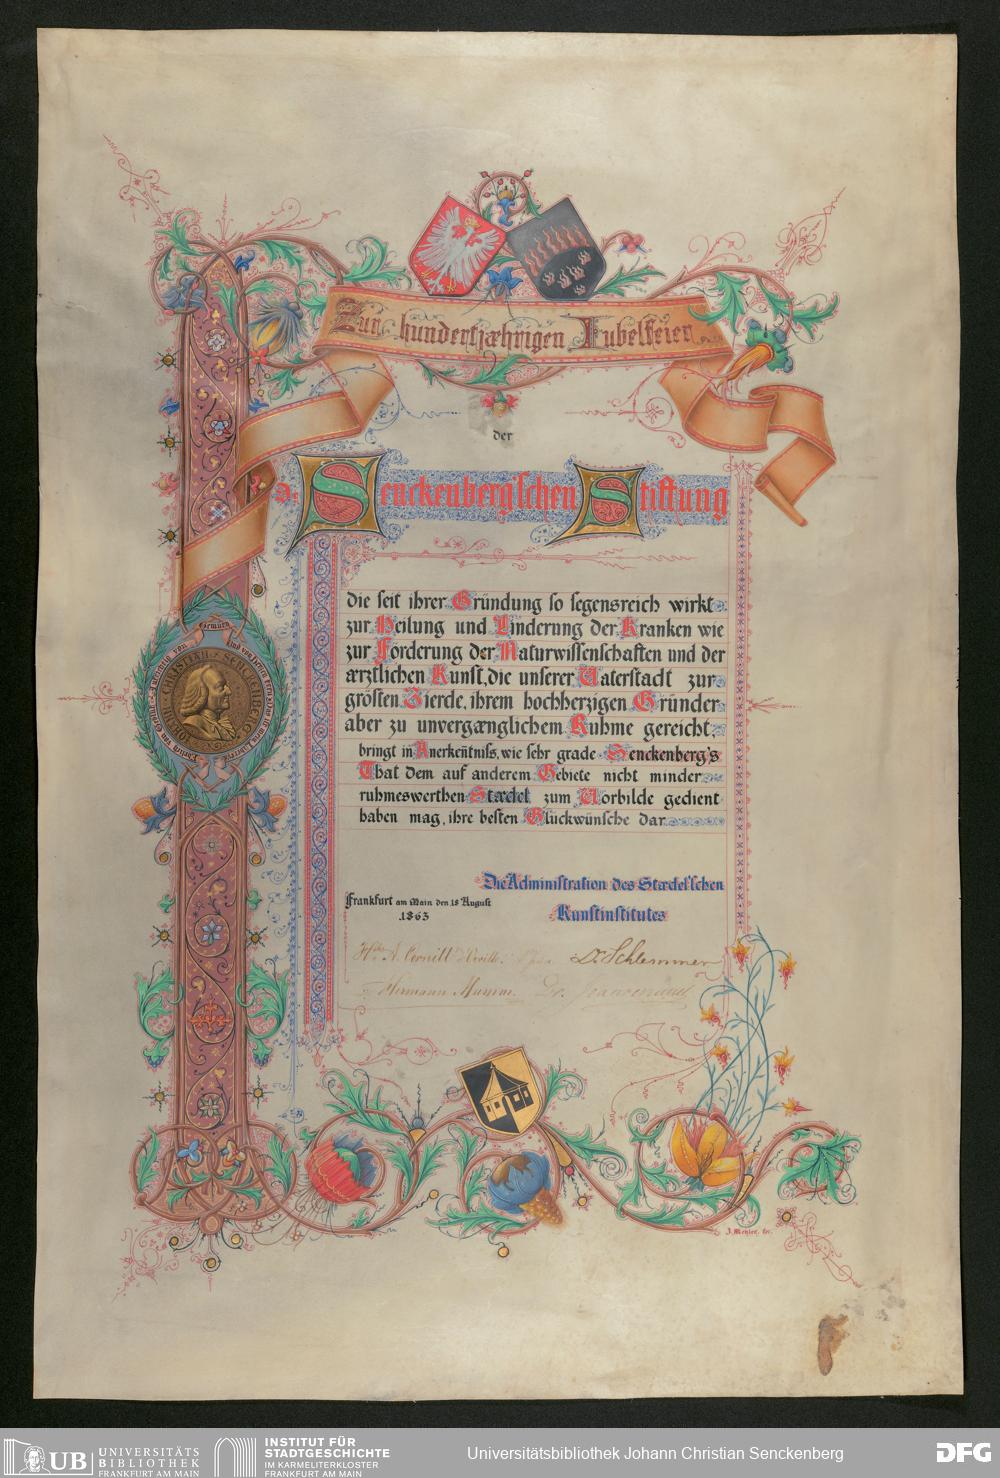 Zur hundertjæhrigen Jubelfeier
der
Dr. Senckenberg'schen Stiftung
die seit ihrer Gründung so segensreich wirkt
zur Heilung und Linderung der Kranken wie
zur Förderung der Naturwissenschaften und der
ærztlichen Kunst, die unserer Vaterstadt zur
grösten Zierde, ihrem hochherzigen Gründer
aber zu unvergænglichem Ruhme gereicht,
bringt in Anerkeñtniß, wie sehr grade Senckenberg's
That dem auf anderem Gebiete nicht minder
ruhmeswerthen Stædel zum Vorbilde gedient
haben mag, ihre besten Glückwünsche dar
Die Administration des Stædel'schen
Kunstinstitutes
Frankfurt am Main den 18 August
1863
Dr. Schlemmer
Hermann Mumm.
JOH. CHRISTIAN SENCKENBERG
UB UNIVERSITÄTS
BIBLIOTHEK
FRANKFURT AM MAIN
INSTITUT FÜR
STADTGESCHICHTE
IM KARMELITERKLOSTER
FRANKFURT AM MAIN
Universitätsbibliothek Johann Christian Senckenberg
DFG